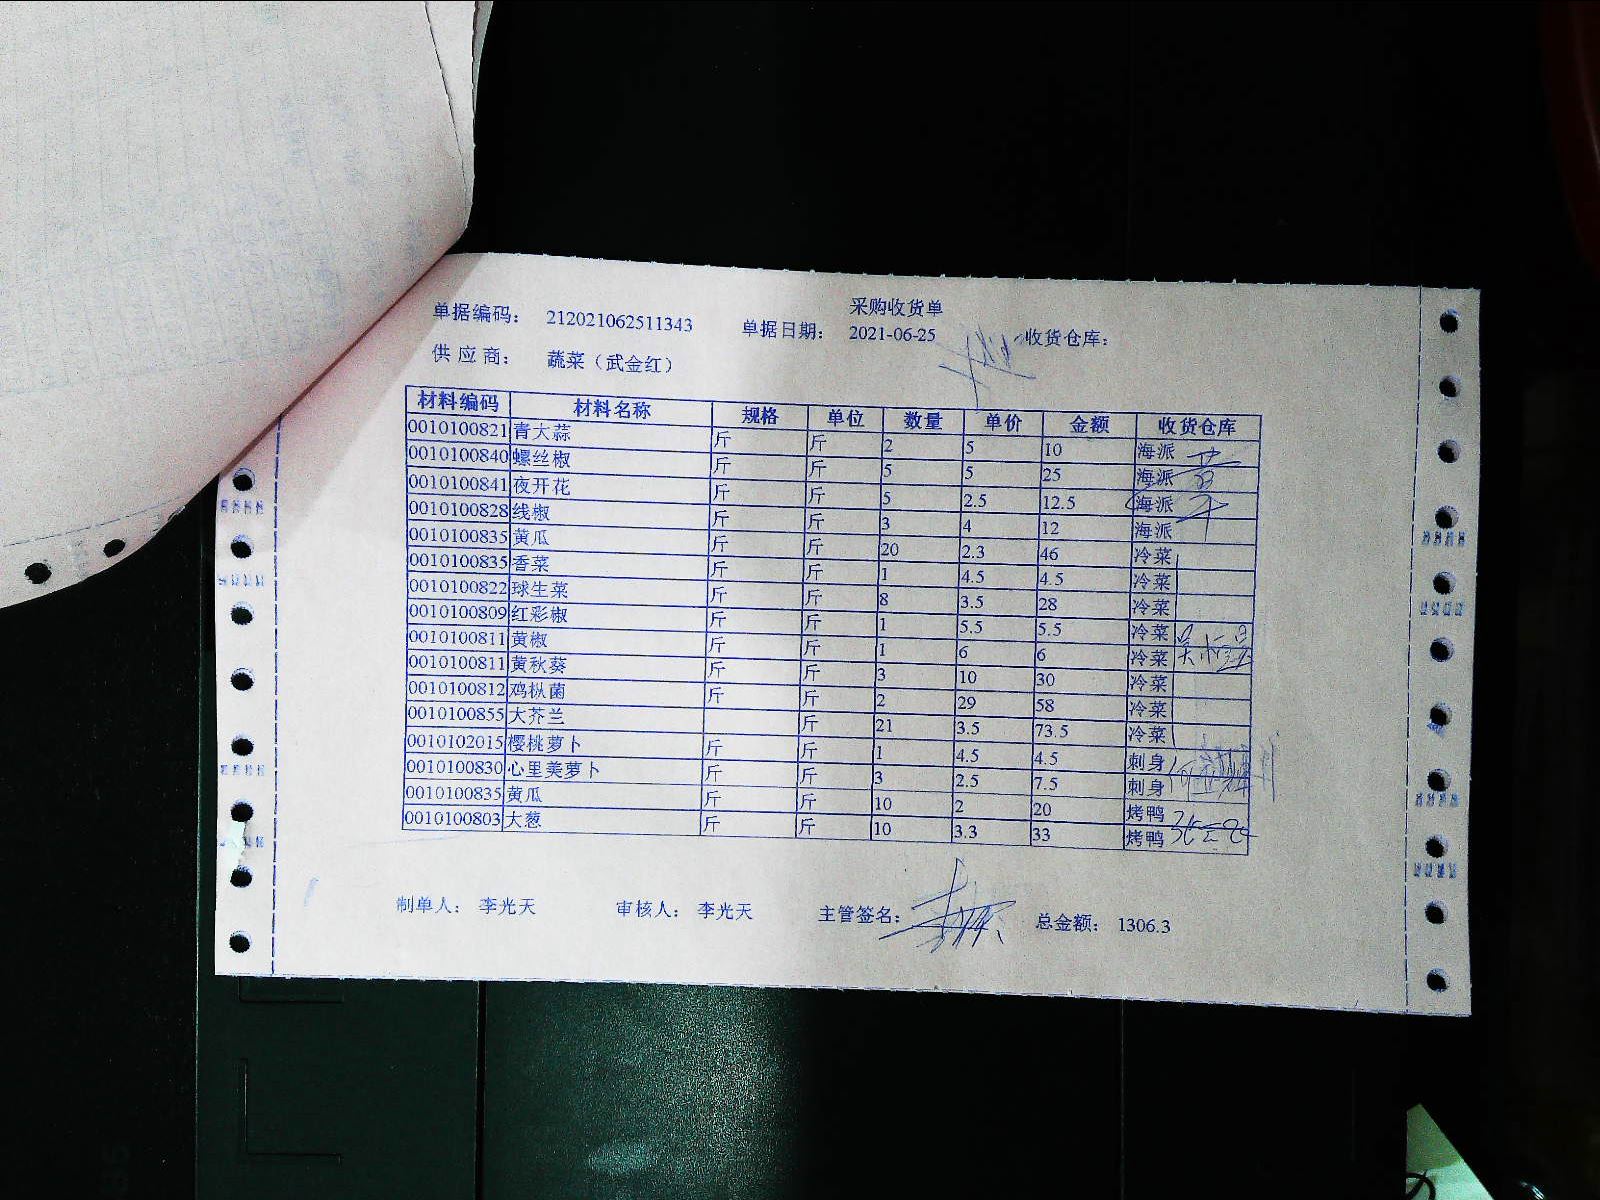 采购收货单
单据编码： 212021062511343 单据日期： 2021-06-25 收货仓库：
供应商： 蔬菜（武金红）
材料编码 材料名称 规格 单位 数量 单价 金额 收货仓库
0010100821 青大蒜 斤 斤 2 5 10 海派
0010100840 螺丝椒 斤 斤 5 5 25 海派
0010100841 夜开花 斤 斤 5 2.5 12.5 海派
0010100828 线椒 斤 斤 3 4 12 海派
0010100835 黄瓜 斤 斤 20 2.3 46 冷菜
0010100835 香菜 斤 斤 1 4.5 4.5 冷菜
0010100822 球生菜 斤 斤 8 3.5 28 冷菜
0010100809 红彩椒 斤 斤 1 5.5 5.5 冷菜
0010100811 黄椒 斤 斤 1 6 6 冷菜
0010100811 黄秋葵 斤 斤 3 10 30 冷菜
0010100812 鸡枞菌 斤 斤 2 29 58 冷菜
0010100855 大芥兰 斤 21 3.5 73.5 冷菜
0010102015 樱桃萝卜 斤 斤 1 4.5 4.5 刺身
0010100830 心里美萝卜 斤 斤 3 2.5 7.5 刺身
0010100835 黄瓜 斤 斤 10 2 20 烤鸭
0010100803 大葱 斤 斤 10 3.3 33 烤鸭
制单人： 李光天 审核人： 李光天 主管签名： 总金额： 1306.3